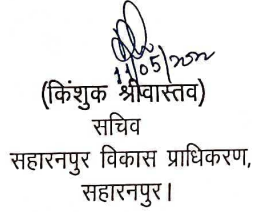 11/05/2022
(किंशुक श्रीवास्तव)
सचिव
सहारनपुर विकास प्राधिकरण,
सहारनपुर।